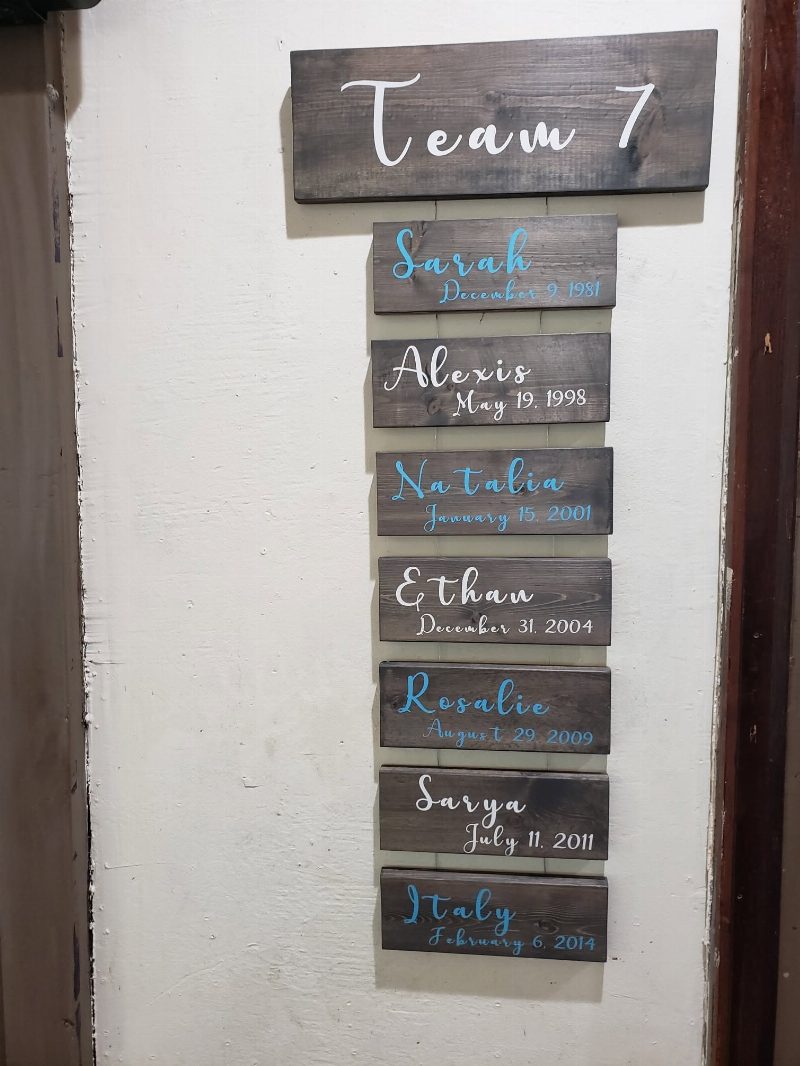 Team 7
Sarah
December 9, 1981
Alexis
May 19, 1998
Natalia
January 15, 2001
Ethan
December 31, 2004
Rosalie
August 29, 2009
Sarya
July 11, 2011
Italy
February 6, 2014